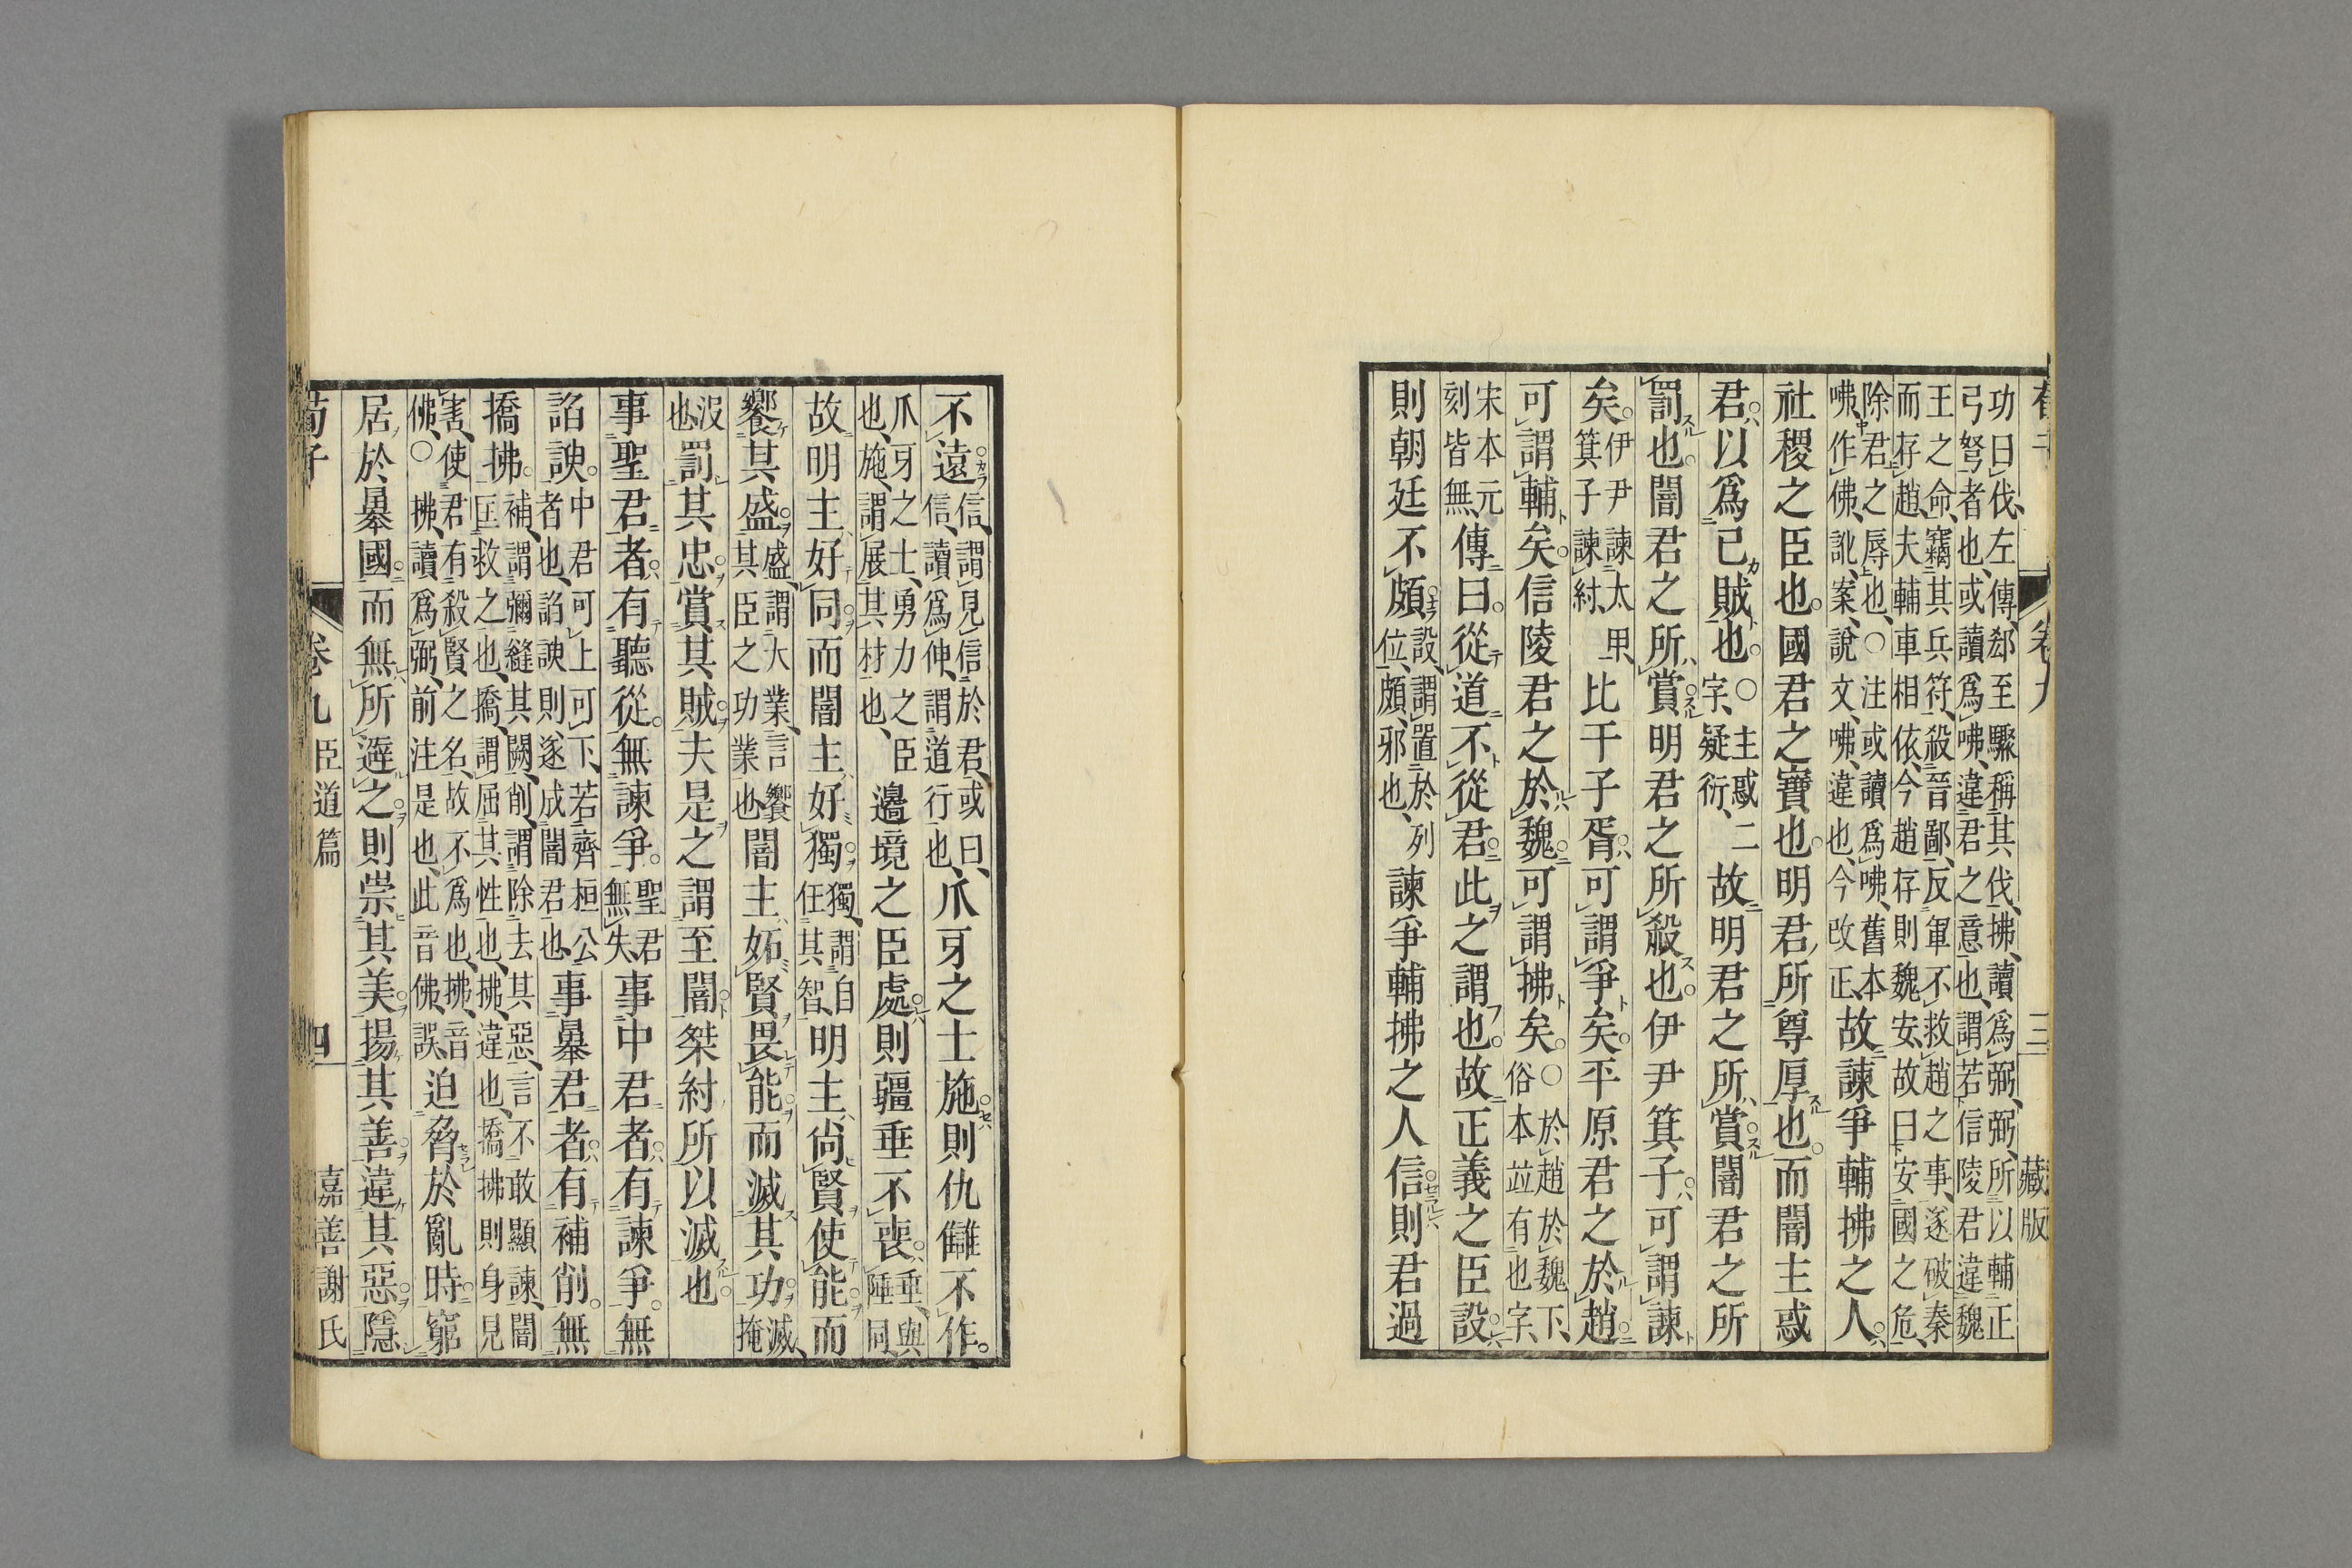 荀子 卷九 三 藏版
功曰伐、左傳、郄至驟稱其伐、拂、讀爲弼、弼、所以輔正
弓弩者也、或讀爲咈、違君之意也、謂若信陵君違魏
王之命、竊其兵符、殺晉鄙、反軍不救趙之事、遂破秦
而存趙、夫輔車相依、今趙存則魏安、故曰安國之危、
除君之辱也、○注或讀爲咈、舊本
咈作佛、訛、案、說文、咈、違也、今改正、故諫爭輔拂之人
社稷之臣也。國君之寶也。明君所尊厚也。而闇主惑
君。以爲己賊也。○主惑二字、疑衍、故明君之所賞闇君之所
罰也。闇君之所賞明君之所殺也。伊尹箕子可謂諫
矣。伊尹諫太甲、箕子諫紂、比干子胥可謂爭矣。平原君之於趙
可謂輔矣。信陵君之於魏可謂拂矣。○於趙於魏下、俗本竝有也字、
宋本元刻皆無、傳曰。從道不從君此之謂也。故正義之臣設
則朝廷不頗設、謂置於列位、頗、邪也、諫爭輔拂之人信則君過
不遠信、謂見信於君、或曰、信、讀爲伸、謂道行也、爪牙之士施則仇讎不作。
爪牙之士、勇力之臣也、施、謂展其材也、邊境之臣處則疆垂不喪。垂、與陲同、
故明主好同而闇主好獨獨、謂自任其智、明主尙賢使能而
饗其盛盛、謂大業、言饗其臣之功業也闇主妬賢畏能而滅其功滅、掩
沒也罰其忠賞其賊夫是之謂至闇桀紂所以滅也。
事聖君者。有聽從。無諫爭。聖君無失、事中君者。有諫爭。無
諂諛。中君可上可下、若齊桓公者也、諂諛則遂成闇君也、事暴君者。有補削。無
撟拂。補、謂彌縫其闕、削、謂除去其惡、言不敢顯諫、闇匡救之也、撟、謂屈其性也、拂、違也、撟拂則身見
害、使君有殺賢之名、故不爲也、拂、音佛、○拂、讀爲弼、前注是也、此音佛、誤、迫脅於亂時。窮
居於暴國。而無所避之則崇其美揚其善違其惡隱
荀子 卷九 臣道篇 四 嘉善謝氏